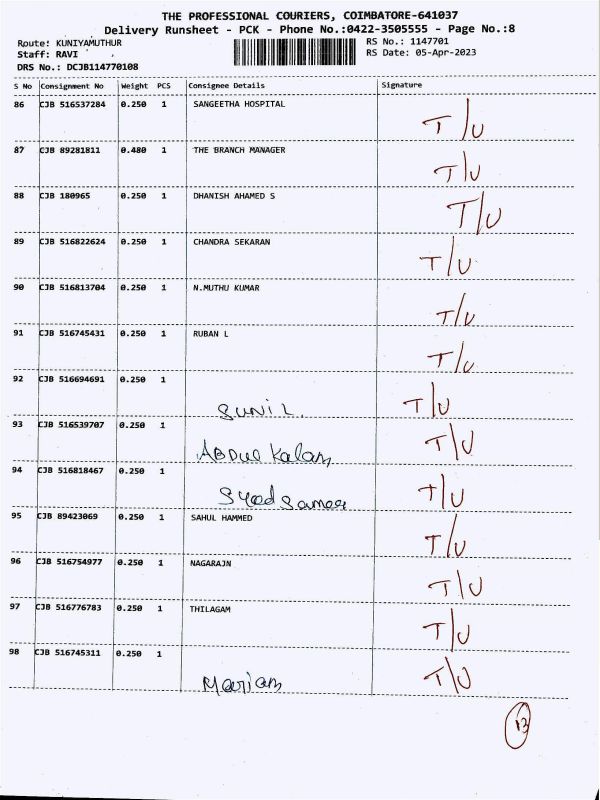 THE PROFESSIONAL COURIERS, COIMBATORE-641037
Delivery Runsheet - PCK - Phone No.:0422-3505555 - Page No.:8
Route: KUNIYAMUTHUR RS No.: 1147701
Staff: RAVI RS Date: 05-Apr-2023
DRS No.: DCJB114770108
S No Consignment No Weight PCS Consignee Details Signature
86 CJB 516537284 0.250 1 SANGEETHA HOSPITAL
T/U
87 CJB 89281811 0.480 1 THE BRANCH MANAGER
T/U
88 CJB 180965 0.250 1 DHANISH AHAMED S
T/U
89 CJB 516822624 0.250 1 CHANDRA SEKARAN
T/U
90 CJB 516813704 0.250 1 N.MUTHU KUMAR
T/U
91 CJB 516745431 0.250 1 RUBAN L
T/U
92 CJB 516694691 0.250 1
SUNIL. T/U
93 CJB 516539707 0.250 1
ABDUL Kalam T/U
94 CJB 516818467 0.250 1
Syed Sameer T/U
95 CJB 89423069 0.250 1 SAHUL HAMMED
T/U
96 CJB 516754977 0.250 1 NAGARAJN
T/U
97 CJB 516776783 0.250 1 THILAGAM
T/U
98 CJB 516745311 0.250 1
Mariam T/U
13